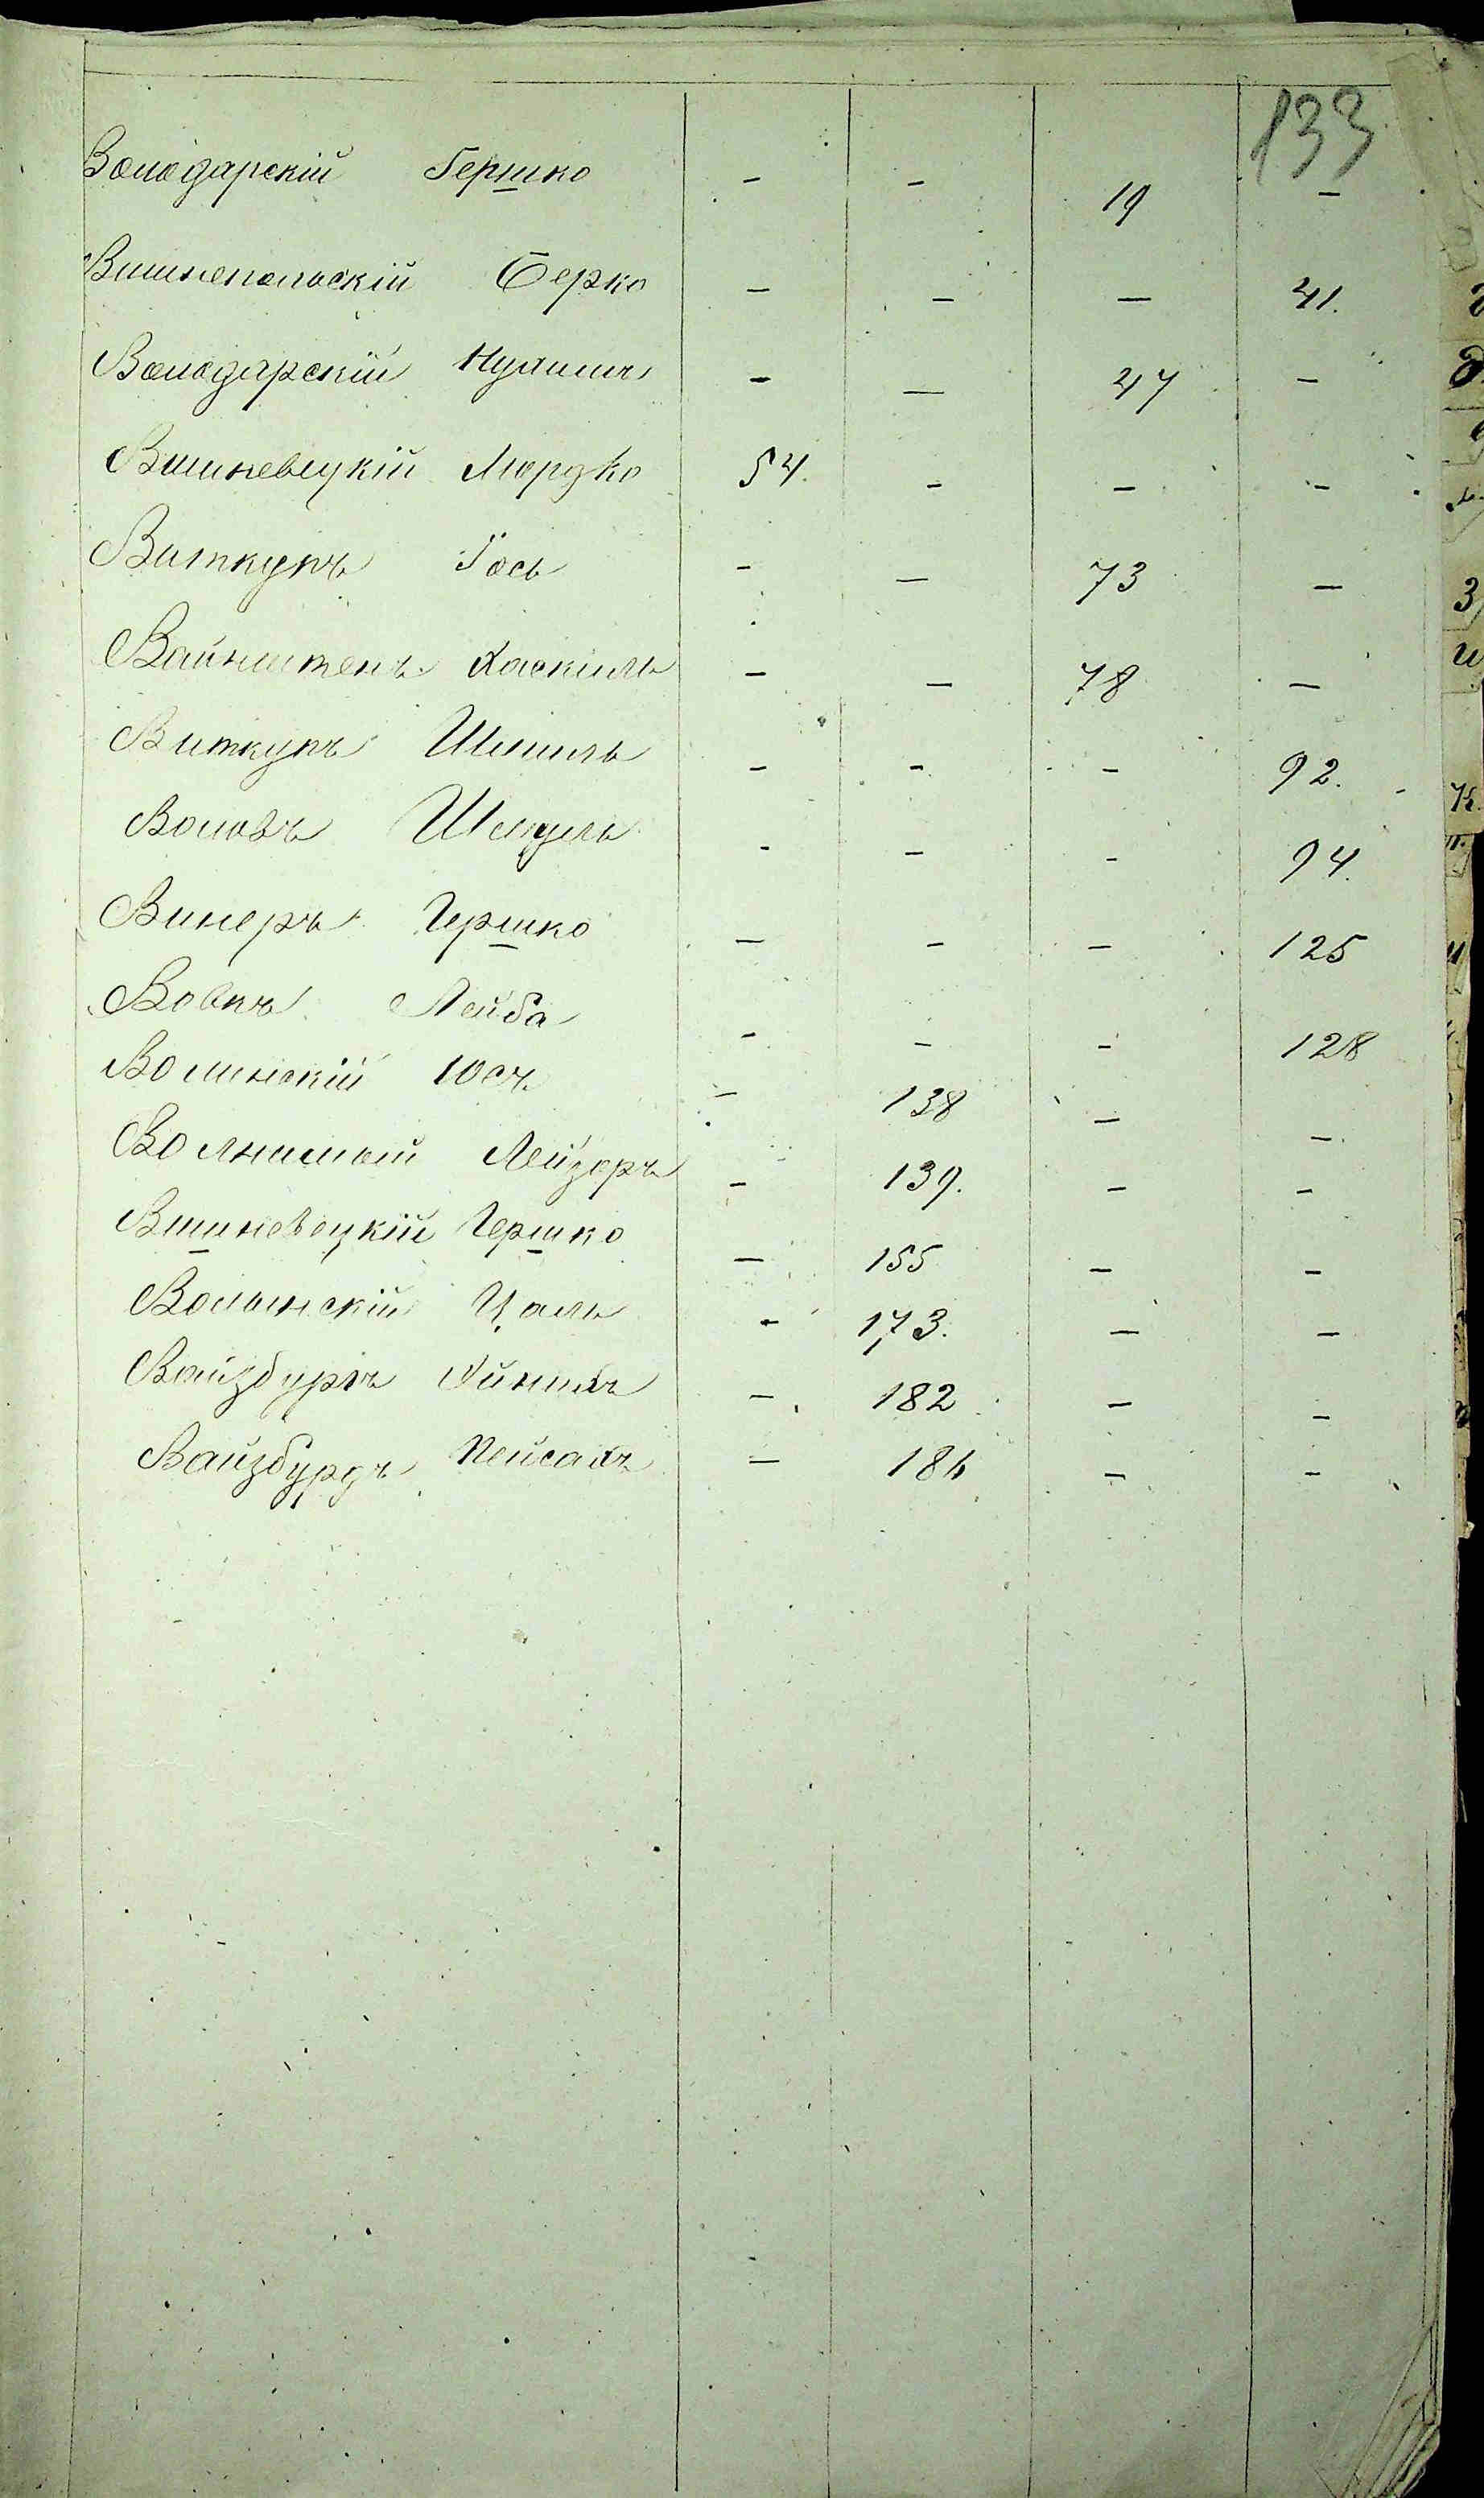 133
Володарскій Гершко - - 19 -
Вишнепольскій Берко - - - 41.
Володарскій Нухимъ - - 47 -
Вишневецкій Мордко 54. - - -
Виткупъ Іось - - 73 -
Вайнштенъ Хаскиль - - 78 -
Виткупъ Шмиль - - - 92.
Воловъ Шмуль - - - 94.
Винеръ Гершко - - - 125
Вовкъ Лейба - - - 128
Волинскій Юсъ - 138 - -
Лейзеръ - 139. - -
Вишневецкій Гершко - 155 - -
Волынскій Цаль - 173. - -
Вайзбургъ - 182 - -
Вайзбурдъ Пейсахъ - 186 - -